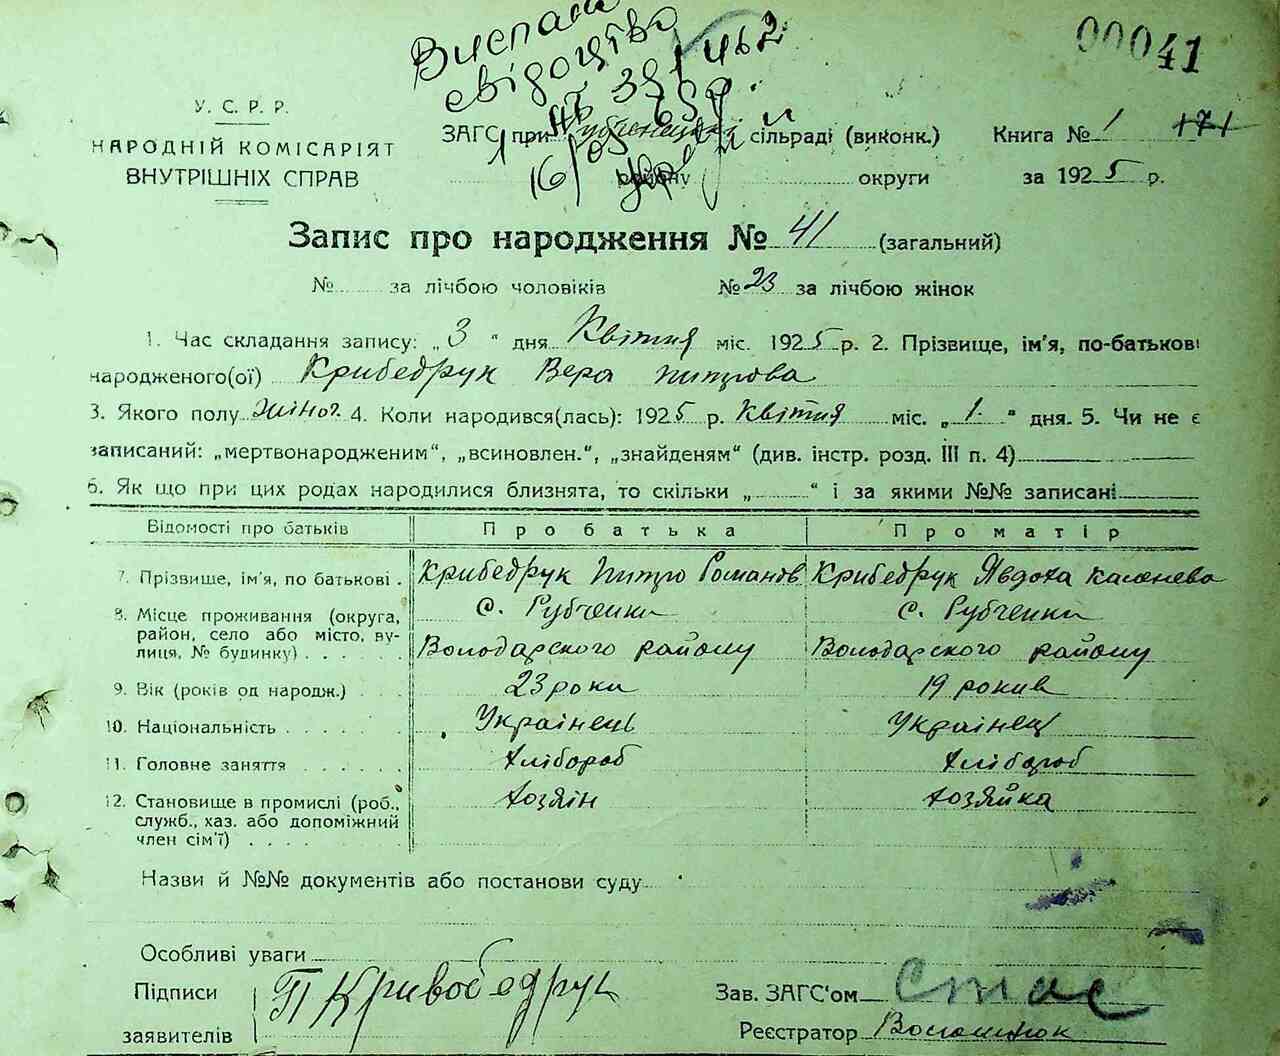 00041
Виспали
свідоцтво
У. С. Р. Р.
НАРОДНІЙ КОМІСАРІЯТ
ВНУТРІШНІХ СПРАВ
ЗАГС при сільраді (виконк.) Книга № 1 171
16/ району округи за 1925 р.
Запис про народження № 41 (загальний)
№ за лічбою чоловіків № 23 за лічбою жінок
1. Час складання запису: „3“ дня Квітня міс. 1925 р. 2. Прізвище, ім'я, по-батькові
народженого(ої) Крибедрук Вера
3. Якого полу жіноч. 4. Коли народився(лась): 1925 р. Квітня міс. „1.“ дня. 5. Чи не є
записаний: „мертвонародженим“, „всиновлен.“, „знайденям“ (див. інстр. розд. III п. 4)
6. Як що при цих родах народилися близнята, то скільки „ “ і за якими №№ записані
Відомості про батьків Про батька Про матір
7. Прізвище, ім'я, по батькові . Крибедрук Романов Крибедрук Явдоха
8. Місце проживання (округа, с. Рубченки с. Рубченки
район, село або місто, ву-
лиця, № будинку) . . . . . Володарского району Володарского району
9. Вік (років од народж.) . . 23 роки 19 років
10. Національність . . . . . . Українець Українец
11. Головне заняття . . . . . Хлібороб Хлібороб
12. Становище в промислі (роб., хозяін хозяйка
служб., хаз. або допоміжний
член сім'ї) . . . . . . . .
Назви й №№ документів або постанови суду
Особливі уваги
Підписи П Кривобедрук Зав. ЗАГС'ом
заявителів Реєстратор